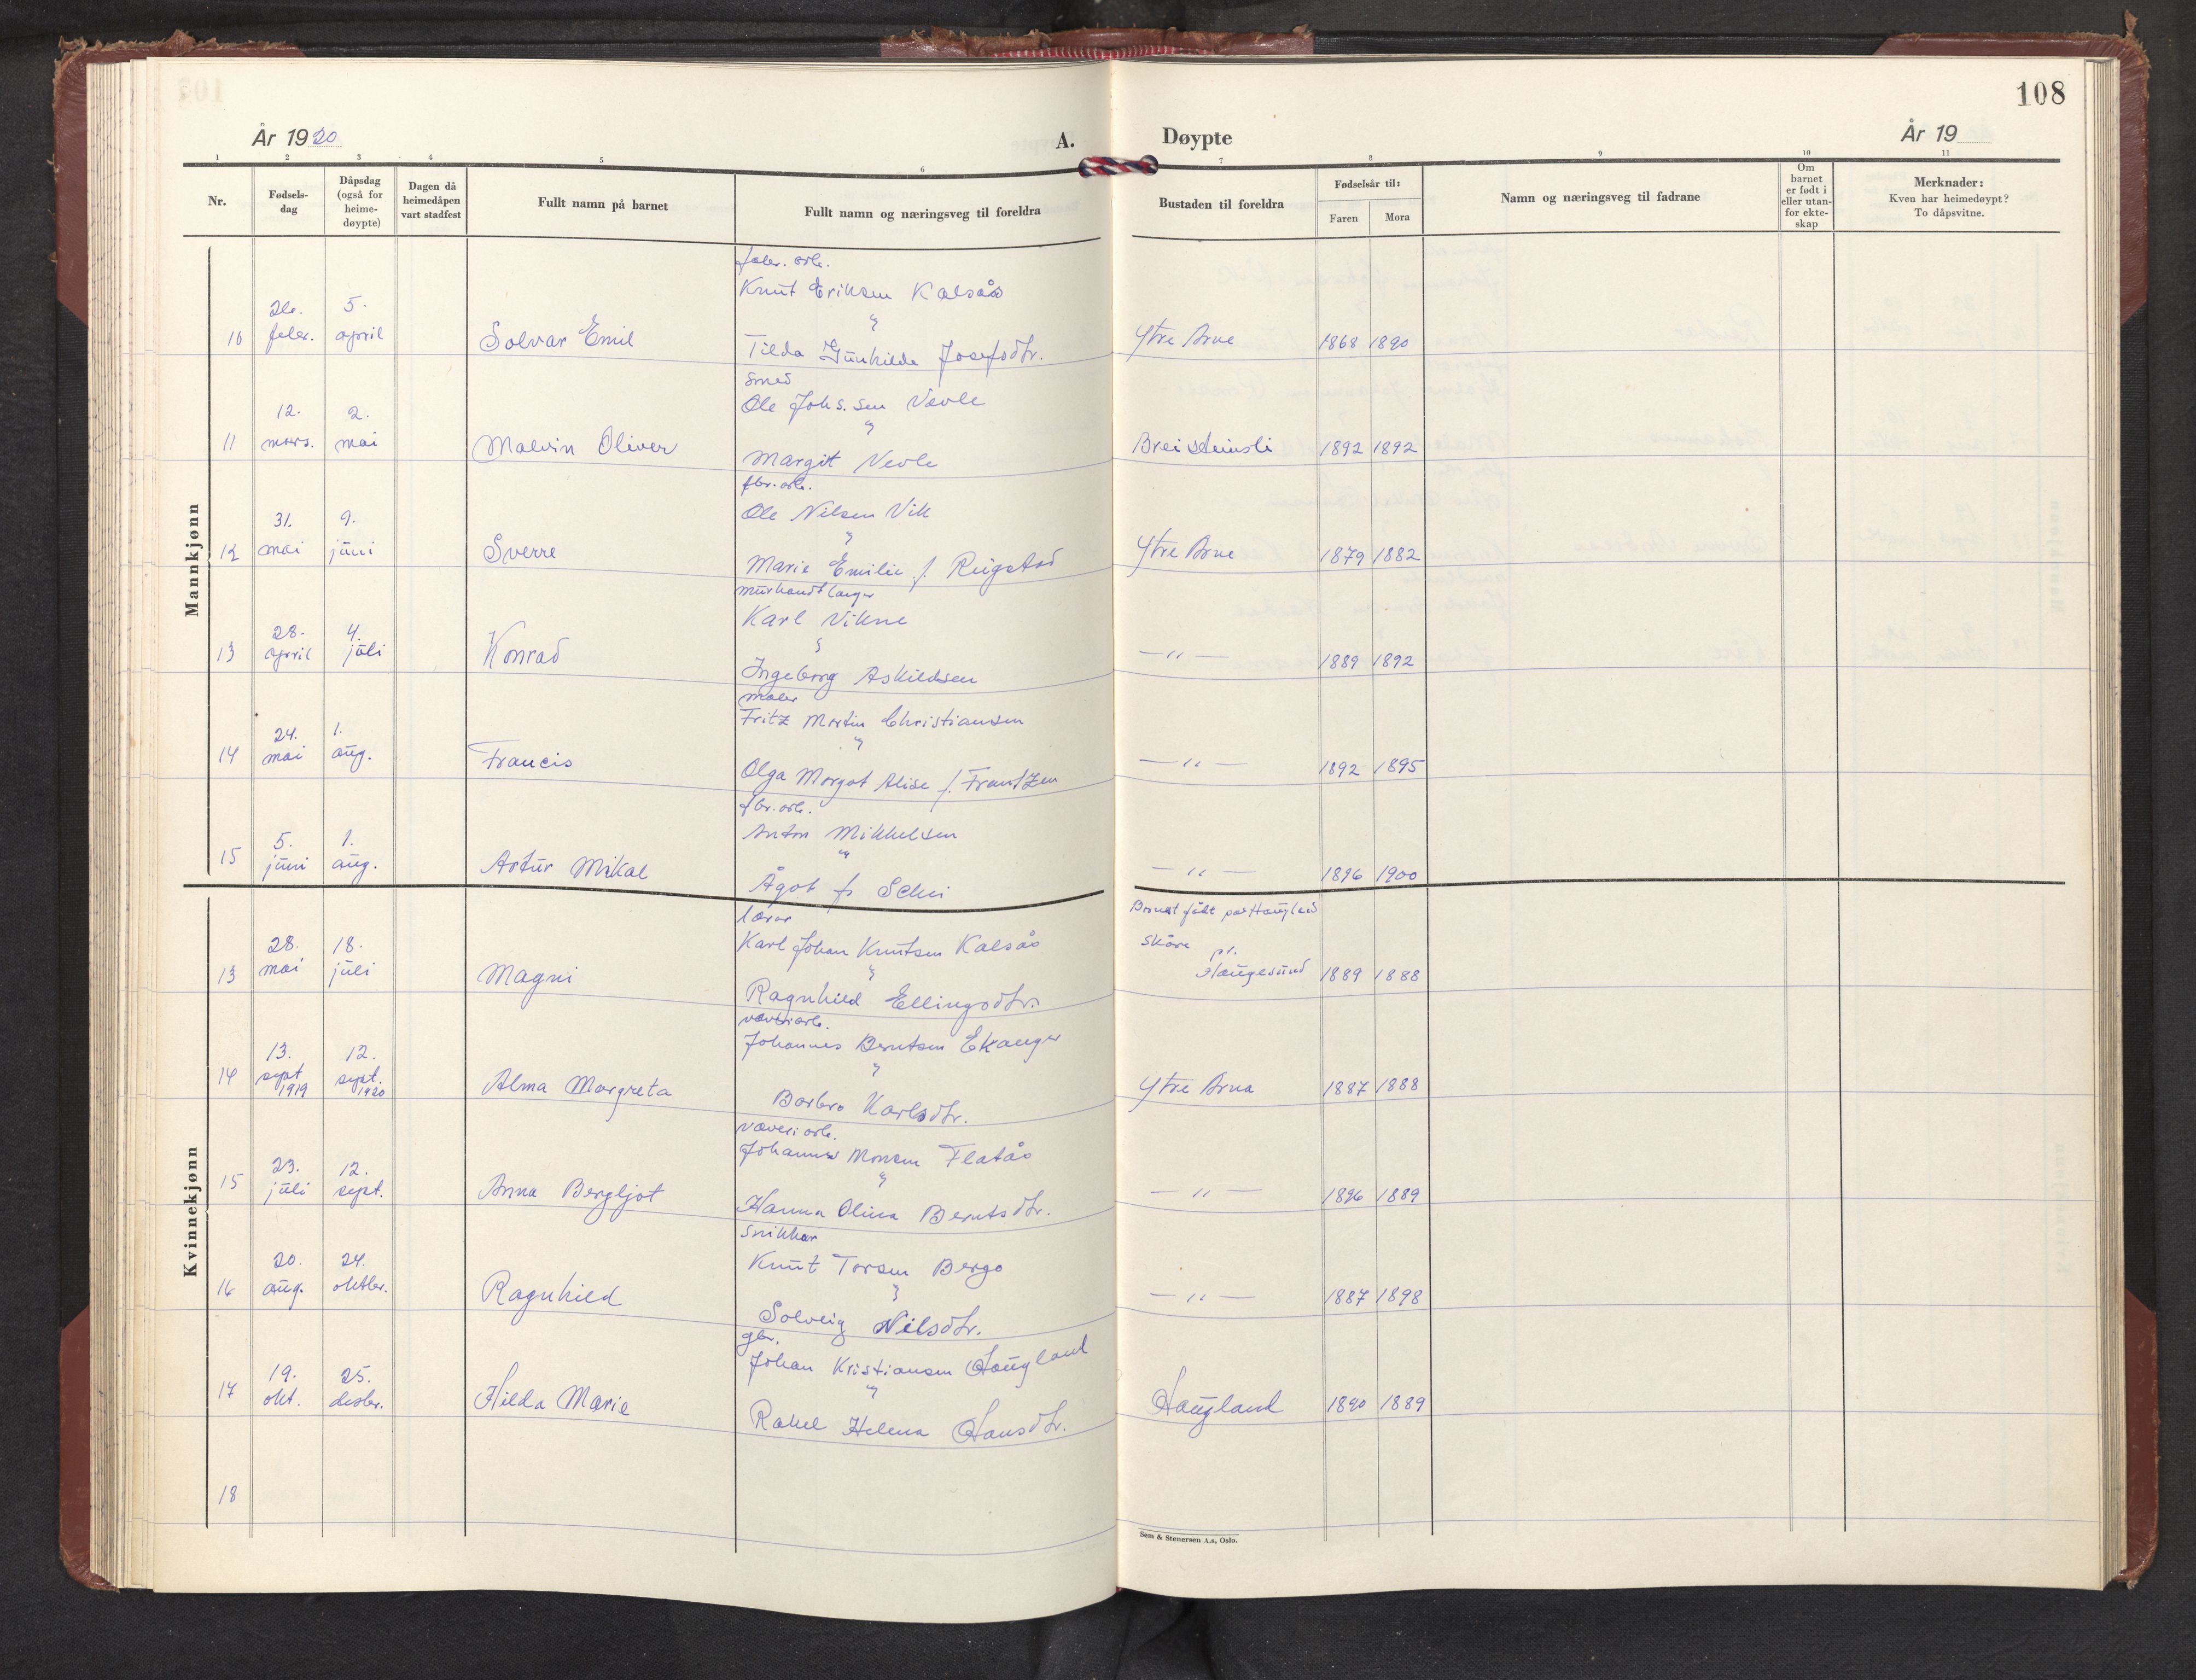 108
År 1920
A.
Døypte
År 19
1 2 3 4 5 6 7 8 9 10 11
Nr.
Fødsels-
dag
Dåpsdag
(også for
heime-
døypte)
Dagen då
heimedåpen
vart stadfest
Fullt namn på barnet
Fullt namn og næringsveg til foreldra
Bustaden til foreldra
Fødselsår til:
Faren Mora
Namn og næringsveg til fadrane
Om
barnet
er født i
eller utan-
for ekte-
skap
Merknader:
Kven har heimedøypt?
To dåpsvitne.
Mannkjønn
fabr. arb.
Knut Eriksen Kalsås
26. 5.
10 febr. april Solvar Emil Ytre Arne 1868 1890
Tilda Gunhilda Josefsdtr.
smed
Ole Johs.sen Nevle
12. 2.
11 mars. mai Malvin Oliver Breisteinsli 1892 1892
Margit Nevle
fbr. arb.
Ole Nilsen Vik
31. 9.
12 mai juni Sverre Ytre Arne 1879 1882
Marie Emilie f. Rigstad
murhandtlanger
Karl Vikne
28. 4.
13 april juli Konrad —"— 1889 1892
Ingeborg Askildsen
maler
Fritz Martin Christiansen
24. 1.
14 mai aug. Francis —"— 1892 1895
Olga Margot Alise f. Frantzen
fbr. arb.
Anton Mikkelsen
5. 1.
15 juni aug. Artur Mikal —"— 1896 1900
Ågot f. Schei
Kvinnekjønn
lærar
Karl Johan Knutsen Kalsås
Barnet født på Haugland
Skåre
pr.
28. 18.
13 mai juli Magni Haugesund 1889 1888
Ragnhild Ellingsdtr.
væveriarb.
Johannes Berntsen Ekanger
13. 12.
14 sept 1919 sept. 1920 Alma Margreta Ytre Arna 1887 1888
Barbro Karlsdtr.
væveriarb.
Johannes Monsen Flatås
23. 12.
15 juli sept. Anna Bergljot —"— 1896 1889
Hanna Olina Berntsdtr.
snikkar
Knut Torsen Bergo
20. 24.
16 aug. oktbr. Ragnhild —"— 1887 1898
Solveig Nilsdtr.
gbr.
Johan Kristiansen Haugland
19. 25.
17 okt. desbr. Hilda Marie Haugland 1890 1889
Rakel Helena Hansdtr.
18
Sem & Stenersen A.s, Oslo.